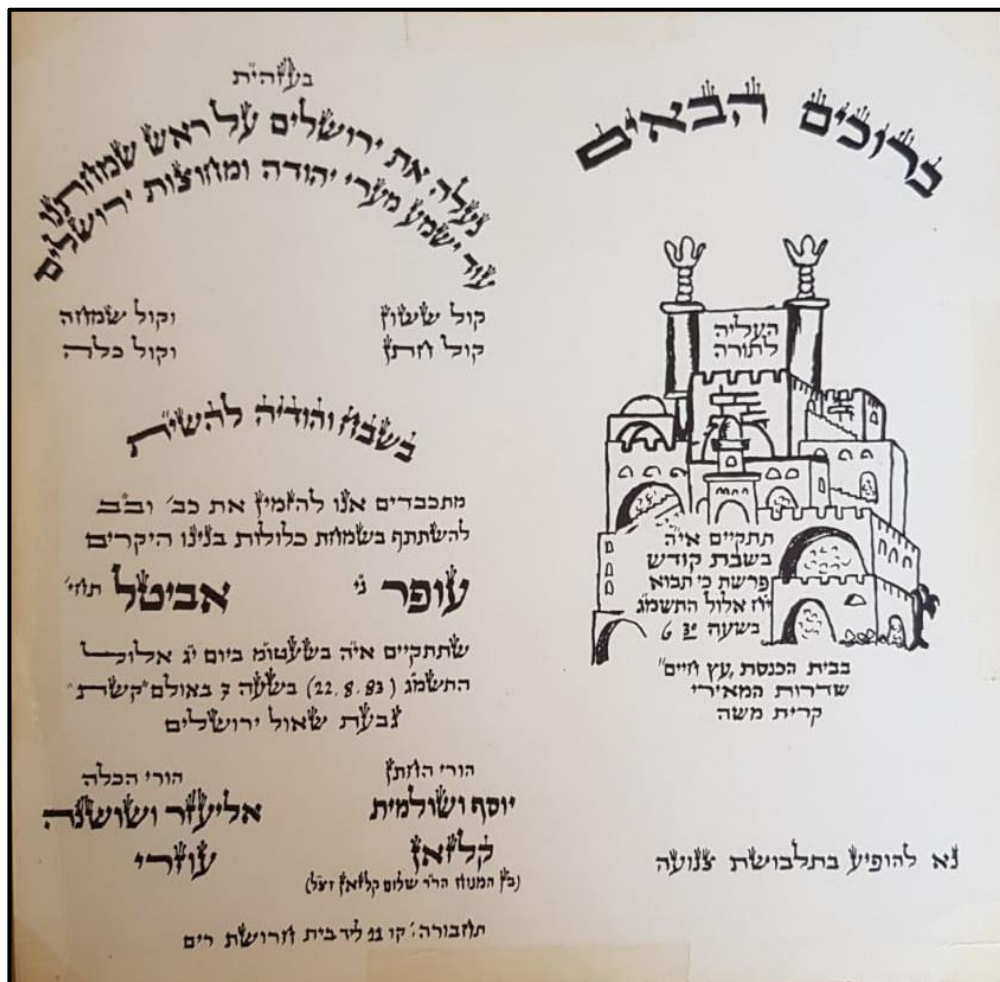 ברוכים הבאים
העליה
לתורה
תתקיים אי״ה
בשבת קודש
פרשת כי תבוא
י״ח אלול התשמ״ג
בשעה 6 30
בבית הכנסת „עץ חיים"
שדרות המאירי
קרית משה
נא להופיע בתלבושת צנועה
בעזהי״ת
נעלה את ירושלים על ראש שמחתנו
עוד ישמע מערי יהודה ומחוצות ירושלים
קול ששון וקול שמחה
קול חתן וקול כלה
בשבח והודיה להשי״ת
מתכבדים אנו להזמין את כב׳ וב״ב
להשתתף בשמחת כלולות בנינו היקרים
עופר ני אביטל תחי׳
שתתקיים אי״ה בשעטו״מ ביום י״ג אלול
התשמ״ג (22.8.83) בשעה 7 באולם "קשת"
גבעת שאול ירושלים
הורי החתן
יוסף ושולמית
קלזאן
(בן המנוח הר״ר שלום קלזאן זצ״ל)
הורי הכלה
אליעזר ושושנה
עוזרי
תחבורה: קו 11 ליד בית חרושת רים